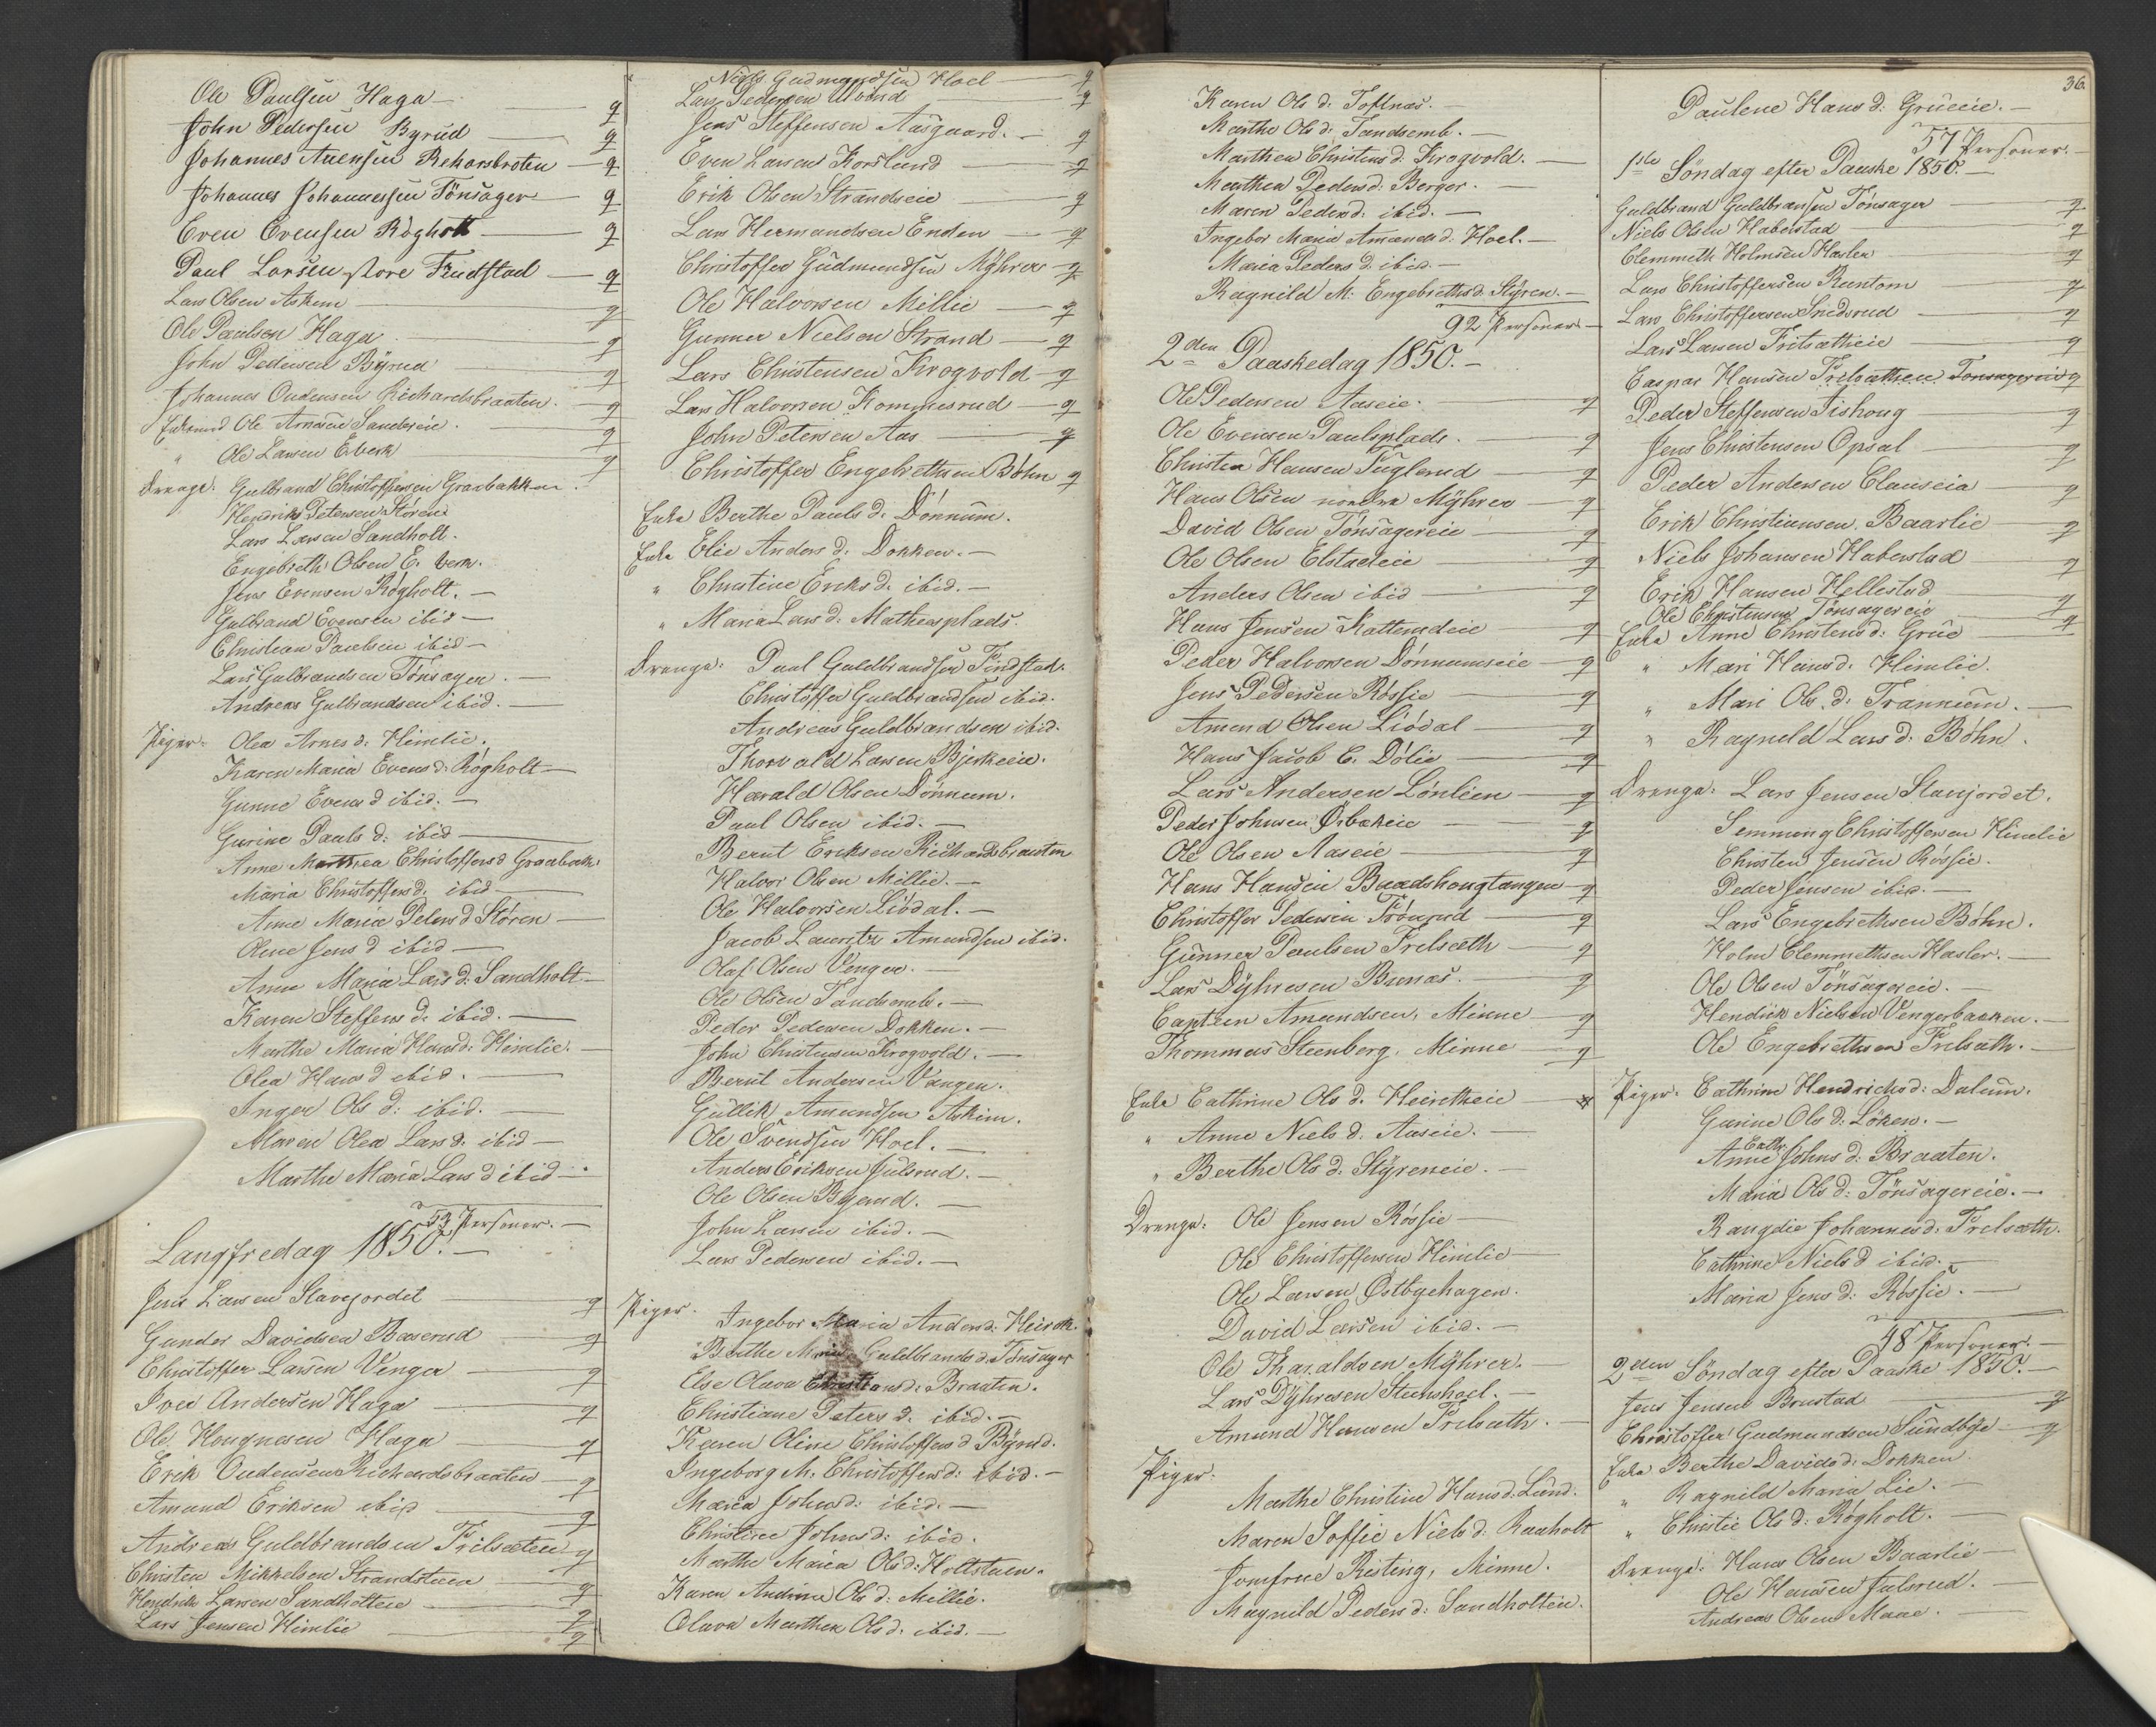 Ole Paulsen Haga — q
John Pedersen Byrud — q
Johannes Auensen Rekarsbroten — q
Johannes Johannessen Tönsager — q
Even Evensen Røgholt — q
Paul Larsen store Findstad — q
Lars Olsen Askem — q
Ole Paulsen Haga — q
John Pedersen Byrud — q
Johannes Oudensen Richardsbraaten — q
Enkemd Ole Arnesen Sandereie — q
" Ole Larsen E. Verk — q
Drenge: Gulbrand Christoffersen Graabakken
Hendrik Petersen Stören
Lars Larsen Sandholt.
Engebreth Olsen E. Verk.
Jens Evensen Røgholt. —
Gulbrand Evensen ibid —
Christian Paulsen ibid —
Lars Gulbrandsen Tönsager. —
Andreas Gulbrandsen ibid. —
Piger: Olea Arnes d. Himlie.
Karen Maria Evens d. Røgholt —
Gunne Evens d ibid. —
Gurine Pauls d: ibid —
Anne Marthea Christoffers d Graabak.
Maria Christoffers d: ibid —
Anne Maria Peters d Stören —
Oline Jens d ibid —
Anne Maria Lars d: Sandholt —
Karen Steffens d: ibid. —
Marthe Maria Hans d: Himlie. —
Olea Hans d ibid. —
Inger Ols d: ibid. —
Maren Olea Lars d: ibid —
Marthe Maria Lars d ibid —
53 Personer. —
Langfredag 1850. —
Jens Larsen Stavejordet — q
Gunder Davidsen Baserud — q
Christoffer Larsen Venger — q
Iver Andersen Haga — q
Ole Hougnesen Haga — q
Erik Oudensen Richardsbraaten — q
Amund Eriksen ibid — q
Andreas Guldbrandsen Frilsæteie q
Christen Mikkelsen Strandstuen — q
Hendrik Larsen Sandholteie — q
Lars Jensen Himlie — q
Niels Gudmundsen Hoel — q
Lars Pedersen — q
Jens Steffensen Aasgaard. — q
Even Larsen Korslund — q
Erik Olsen Strandseie — q
Lars Hermandsen Enden — q
Christoffer Gudmundsen Myhrer — q
Ole Halvorsen Millie — q
Gunner Nielsen Strand — q
Lars Christensen Krogvold — q
Lars Halvorsen Kommesrud — q
John Petersen Aas — q
Christoffer Engebrethsen Böhn q
Enke Berthe Pauls d: Dönnum.
Enke Elie Anders d: Dokken. —
" Christine Eriks d: ibid. —
" Maria Lars d: Mathiasplads.
Drenge: Paul Guldbrandsen Findstad.
Christoffer Guldbrandsen ibid.
Andreas Guldbrandsen ibid.
Thorvald Larsen Bjerkeeie.
Harald Olsen Dönnum.
Paul Olsen ibid. —
Bernt Eriksen Richardsbraaten
Halvor Olsen Millie. —
Ole Halvorsen Liödal. —
Jacob Lauritz Amundsen ibid.
Olaf Olsen Venger. —
Ole Olsen Tandsemb. —
Peder Pedersen Dokken. —
John Christensen Krogvold. —
Bernt Andersen Vangen.
Gullik Amundsen Askim.
Ole Svendsen Hoel. —
Anders Eriksen Julsrud. —
Ole Olsen Byerud. —
John Larsen ibid. —
Lars Pedersen ibid. —
Piger. Ingebor Maria Anders d: Heirek.
Berthe Maria Guldbrands d: Tönsager
Else Olava Christians d: Braaten.
Christiane Peters d. ibid. —
Karen Oline Christoffers d Byrud.
Ingeborg M. Christoffers d: ibid. —
Maria Johns d: ibid. —
Christine Johns d: ibid.
Marthe Maria Ols d: Holtstuen.
Karen Andrine Ols d: Millie.
Olava Marthea Ols d: ibid. —
Karen Ols d. Toftnæs. —
Marthe Ols d: Tandsemb. —
Marthea Christens d: Krogvold. —
Marthea Peders d: Berger. —
Maren Peders d: ibid. —
Ingebor Maria Amunds d: Hoel. —
Maria Peders d. ibid. —
Ragnild M: Engebreths d: Styren. —
92 Personer —
2den Paaskedag 1850. —
Ole Pedersen Aaseie. — q
Ole Evensen Paulsplads. — q
Christen Hansen Fuglerud — q
Hans Olsen nordre Myhrer — q
David Olsen Tönsagereie — q
Ole Olsen Elstadeie — q
Anders Olsen ibid — q
Hans Jensen Kattemdeie — q
Peder Halvorsen Dönnumseie — q
Jens Pedersen Røssie — q
Amund Olsen Liödal — q
Hans Jacob E. Dölie — q
Lars Andersen Lönlien — q
Peder Johnsen Ørbakeie — q
Ole Olsen Aaseie — q
Hans Hansen Baadshougtangen — q
Christoffer Pedersen Tröngrud — q
Gunner Paulsen Frilsæth — q
Lars Dyhresen Burnæs. — q
Captein Amundsen, Minne — q
Thommas Steenberg, Minne — q
Enke Cathrine Ols d. Heirekeie —
" Anne Niels d. Aaseie. —
" Berthe Ols d: Styreneie. —
Drenge: Ole Jensen Røssie —
Ole Christoffersen Himlie —
Ole Larsen Østbyehagen.
David Larsen ibid. —
Ole Tharaldsen Myhrer.
Lars Dyhresen Steenshoel. —
Amund Hansen Frilsæth. —
Piger.
Marthe Christine Hans d: Lund.
Maren Soffie Niels d: Raaholt
Jomfrue Risting, Minne.
Magnild Peders d: Sandholteie.
36.
Paulene Hans d: Grueeie. —
57 Personer. —
1ste Söndag efter Paaske 1850. —
Guldbrand Guldbransen Tönsager — q
Niels Olsen Haberstad — q
Clemmeth Holmsen Hasler — q
Lars Christoffersen Rantom — q
Lars Christoffersen Snedsrud — q
Lars Larsen Fritsætheie — q
Caspar Hansen Frilsætheie Tonsagereie q
Peder Steffensen Tishoug — q
Jens Christensen Opsal — q
Peder Andersen Clauseia — q
Erik Christiansen. Baarlie — q
Niels Johansen Haberstad — q
Erik Hansen Hellestad — q
Ole Christensen Tönsagereie — q
Enke Anne Christens d: Grue —
" Mari Hans d. Himlie.
" Mari Ols d: Trannum. —
" Ragneld Lars d: Böhn.
Drenge: Lars Jensen Stavjordet.
Semming Christoffersen Himlie
Christen Jensen Røssie.
Peder Jensen ibid. —
Lars Engebrethsen Böhn.
Holm Clemmethsen Hasler. —
Ole Olsen Tönsagereie. —
Hendrik Nielsen Vengerbakken. —
Ole Engebrethsen Frilsæth. —
Piger: Cathrine Hendrichs d: Dalum.
Gurine Ols d: Löken. —
Anne Cath. Johns d: Braaten.
Maria Ols d: Tönsagereie. —
Rangdie Johannes d: Frilsæth.
Cathrine Niels d ibid. —
Maria Jens d: Røssie. —
48 Personer. —
2den Söndag efter Paaske 1850. —
Jens Jensen Brustad — q
Christoffer Gudmundsen Sundbye — q
Enke Berthe Davids d: Dokken
" Ragnild Maria Lie. —
" Christie Ols d: Røgholt. —
Drenge: Hans Olsen Baarlie —
Ole Hansen Julsrud. —
Andreas Olsen Maae. —